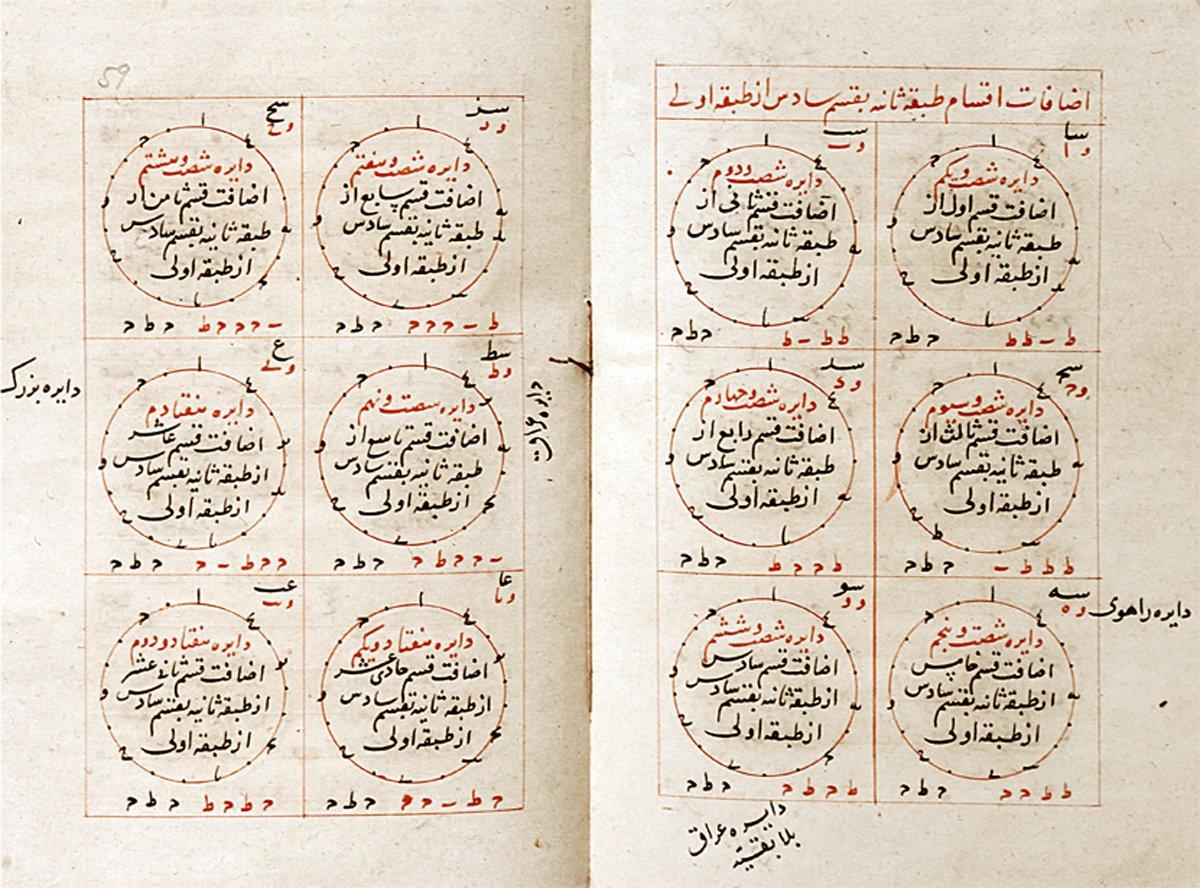 اضافات اقسام طبقه ثانه بقسم سادس از طبقه اولے
سا
و ا
دایره شصت ویکم
اضافت قسم اول از
طبقه ثانیه بقسم سادس
از طبقه اولی
ط ـ ط ط ح ط ح
سب
و ب
دایره شصت ودوم
اضافت قسم ثانی از
طبقه ثانه بقسم سادس
از طبقه اولی
ط ط ـ ط ح ط ح
سج
و ج
دایره شصت وسیوم
اضافت قسم ثالث از
طبقه ثانیه بقسم سادس
از طبقه اولی
ط ط ط ـ ح ط ح
سد
و د
دایره شصت وچهارم
اضافت قسم رابع از
طبقه ثانیه بقسم سادس
از طبقه اولی
ط ح ح ط ح ط ح
سه
و ه
دایره شصت وپنجم
اضافت قسم خامس
از طبقه ثانه بقسم سادس
از طبقه اولی
ط ط ح ح ح ط ح
دایره راهوی
سو
و و
دایره شصت وششم
اضافت قسم سادس
از طبقه ثانه بقسم سادس
از طبقه اولی
ط ح ط ح ح ط ح
دایره عراق
بلا بقیته
59
سز
و ز
دایره شصت وهفتم
اضافت قسم سابع از
طبقه ثانیه بقسم سادس
از طبقه اولی
ط ـ ح ح ح ح ط ح
سح
و ح
دایره شصت وهشتم
اضافت قسم ثامن از
طبقه ثانیه بقسم سادس
از طبقه اولی
ـ ح ح ح ط ح ط ح
سط
و ط
دایره شصت ونهم
اضافت قسم تاسع از
طبقه ثانیه بقسم سادس
از طبقه اولی
ـ ح ح ط ح ح ط ح
دایره عراق
ع
و ے
دایره هفتادم
اضافت قسم عاشر
از طبقه ثانیه بقسم سادس
از طبقه اولی
ح ح ط ـ ح ح ط ح
دایره بزرک
عا
و یا
دایره هفتاد ویکم
اضافت قسم حادی عشر
از طبقه ثانیه بقسم سادس
از طبقه اولی
ح ط ـ ح ح ح ط ح
عب
و یب
دایره هفتاد ودوم
اضافت قسم ثانی عشر
از طبقه ثانیه بقسم سادس
از طبقه اولی
ح ط ح ط ح ط ح